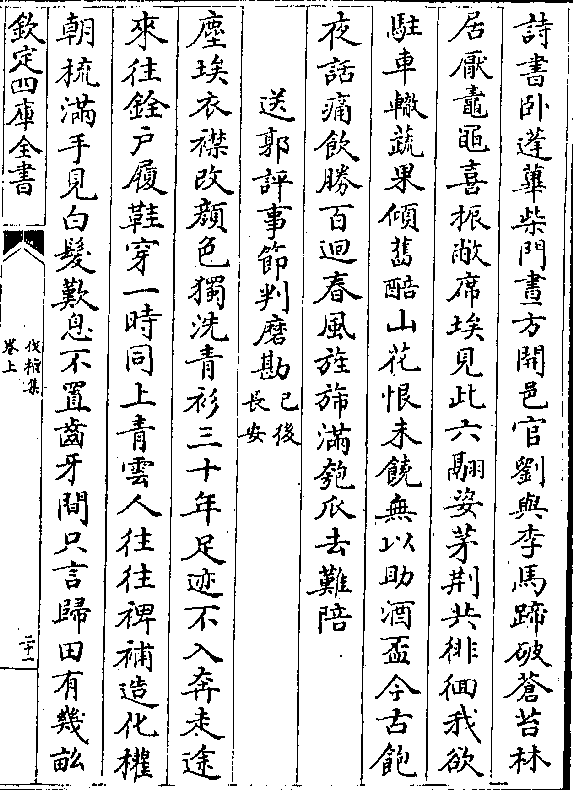 詩書卧蓬蓽柴門晝方開邑官劉與李馬蹄破蒼苔林
居厭鼃黽喜振敝席埃見此六翮姿茅荆共徘徊我欲
駐車轍蔬果傾舊醅山花恨未饒無以助酒盃今古飽
夜話痛飲勝百迴春風旌斾滿匏瓜去難陪
送郭評事節判磨勘已後長安
塵埃衣襟改顔色獨洗青衫三十年足迹不入奔走途
來往銓户履鞋穿一時同上青雲人往往裨補造化權
朝梳滿手見白髮歎息不置齒牙間只言歸田有幾畝
欽定四庫全書
伐檀集
卷上
二十一